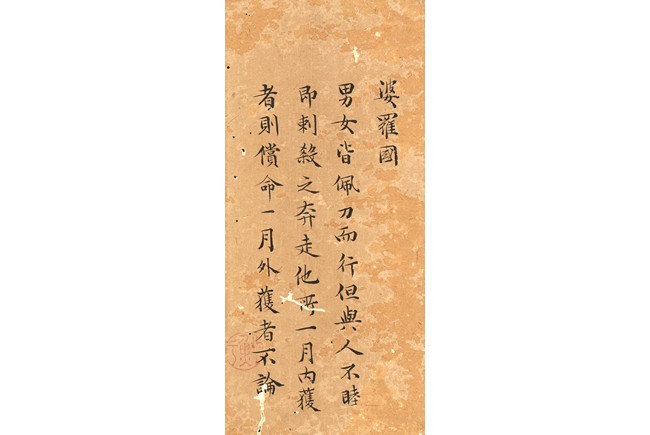 婆羅國
男女皆佩刀而行但與人不睦
即刺殺之奔走他所一月內獲
者則償命一月外獲者不論